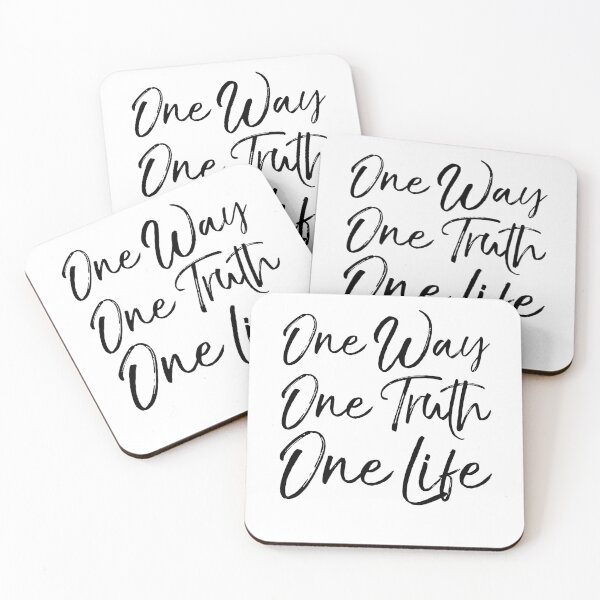 One Way
One Truth
One Life
One Way
One Truth
One Life
One Way
One Truth
One Li
One Way
One Truth
One Life